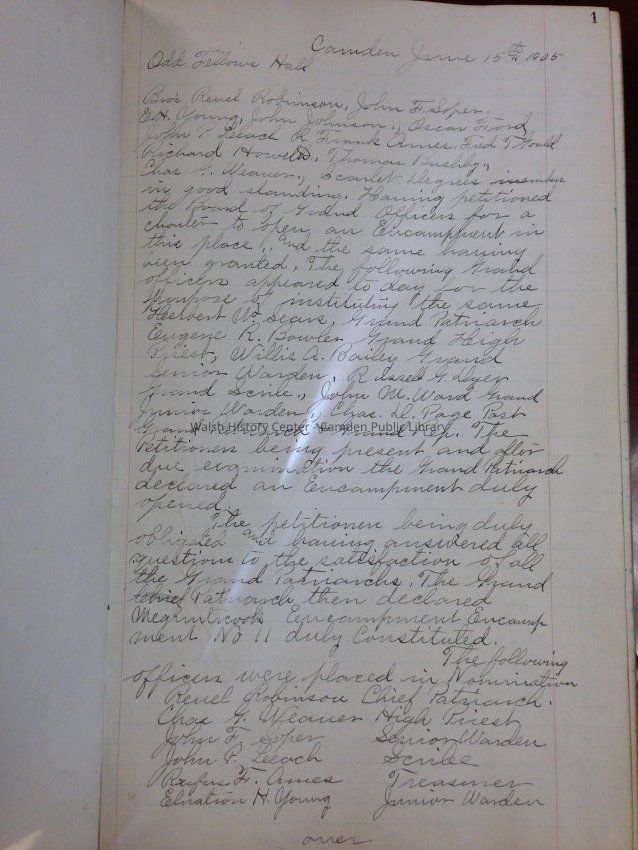 1
Camden June 15th 1905
Odd Fellows Hall
Bros Reuel Robinson, John F. Soper.
E.H. Young, John Johnson., Oscar Ford
John P. Leach R. Frank Ames. Fred T Gould
Richard Howell, Thomas Bushby.,
Chas G. Weaver., Scarlet Degree member
in good standing. Having petitioned
the Board of Grand Officers for a
charter to open an Encampment in
this place, and the same having
been granted. The following Grand
officers appeared to day for the
purpose of instituting the same
Herbert W. Sears, Grand Patriarch
Eugene R. Bowler Grand High
Priest, Willis A. Bailey Grand
Senior Warden, Russell G. Dyer
Grand Scribe., John M. Ward Grand
Junior Warden, Chas. D. Page Past
Grand Patriarch & Grand Rep. The
Walsh History Center - Camden Public Library
Petitioners being present and after
due examination the Grand Patriarch
declared an Encampment duly
opened.
The petitioners being duly
obligated and having answered all
questions to the satisfaction of all
the Grand Patriarchs. The Grand
Chief Patriarch then declared
Megunticook Encampment Encamp
ment No 11 duly Constituted.
The following
officers were placed in Nomination
Reuel Robinson Chief Patriarch.
Chas G. Weaver High Priest
John F. Soper Senior Warden
John P. Leach Scribe
Rufus F. Ames Treasurer
Elnation H. Young Junior Warden
over